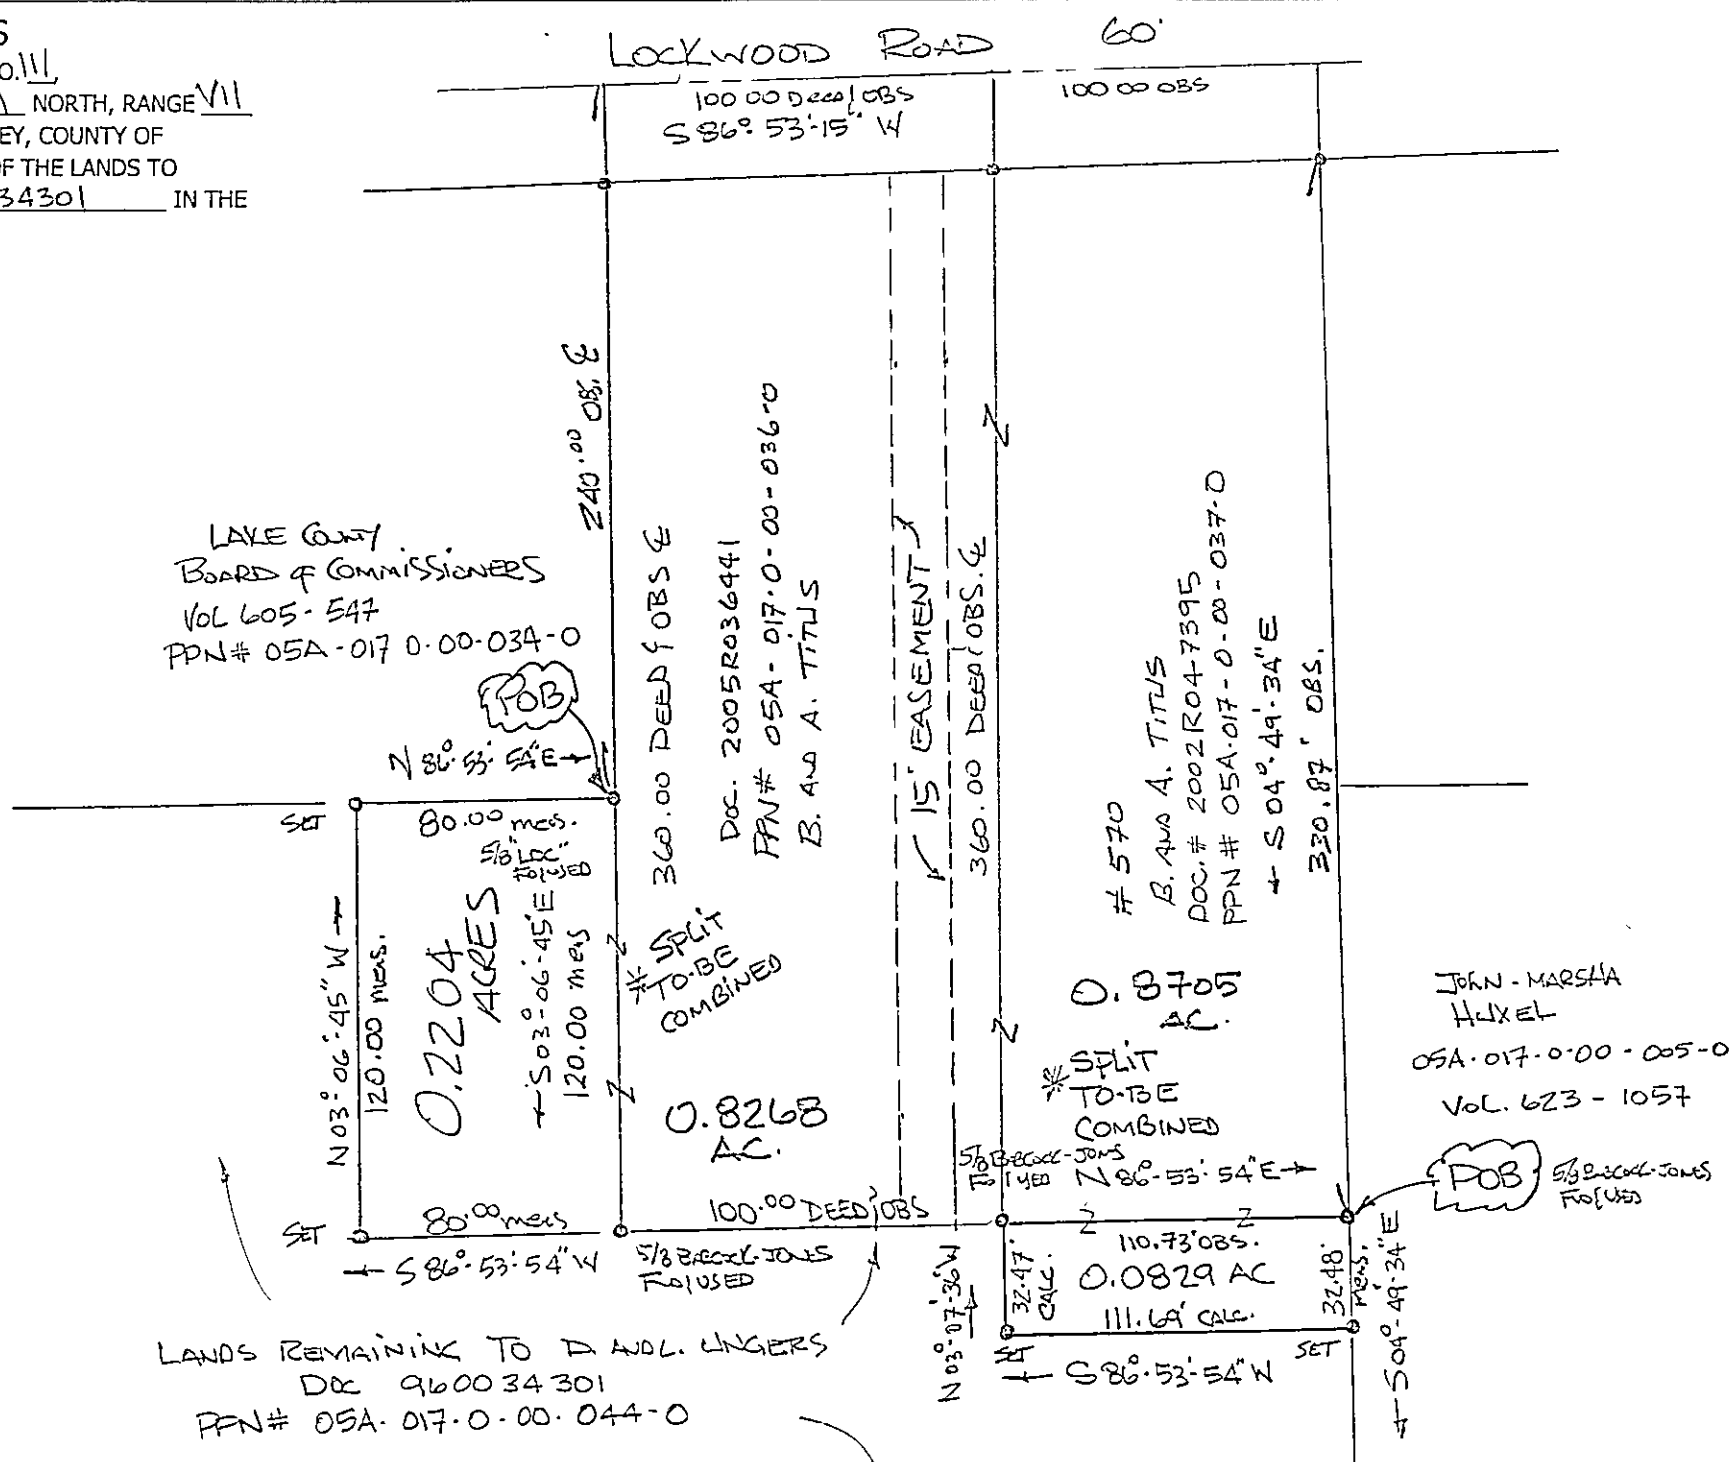 S
O. III,
NORTH, RANGE VII
EY, COUNTY OF
OF THE LANDS TO
34301 IN THE
LOCKWOOD ROAD 60'
100 00 Deed/OBS
S 86° 53' 15" W
100 00 OBS
240.00 OB. ℄
LAKE COUNTY
BOARD of COMMISSIONERS
VOL 605-547
PPN# 05A-017 0-00-034-0
POB
N 86° 53' 54" E →
SET
80.00 meas.
5/8 "LDC"
FD/USED
360.00 DEED & OBS ℄
DOC. 2005R036441
PPN# 05A-017-0-00-036-0
B. AND A. TITUS
15' EASEMENT
360.00 DEED/OBS. ℄
#570
B. AND A. TITUS
DOC.# 2002R047395
PPN# 05A-017-0-00-037-0
← S 04° 49' 34" E
330.87' OBS.
N 03° 06' 45" W →
120.00 meas.
0.2204
ACRES
← S 03° 06' 45" E
120.00 meas
* SPLIT
TO-BE
COMBINED
0.8268
A.C.
0.8705
AC.
* SPLIT
TO-BE
COMBINED
JOHN - MARSHA
HUXEL
05A-017-0-00-005-0
VOL. 623-1057
5/8 BABCOCK-JONES
FD/USED
N 86° 53' 54" E →
POB
5/8 BABCOCK-JONES
FD/USED
SET
80.00 meas
← S 86° 53' 54" W
100.00 DEED/OBS
5/8 BABCOCK-JONES
FD/USED
N 03° 07' 36" W →
32.47'
CALC.
110.73' OBS.
0.0829 AC
111.69' CALC.
32.48'
meas.
← S 04° 49' 34" E
SET
SET
← S 86° 53' 54" W
LANDS REMAINING TO D. AND L. UNGERS
DOC 960034301
PPN# 05A-017-0-00-044-0